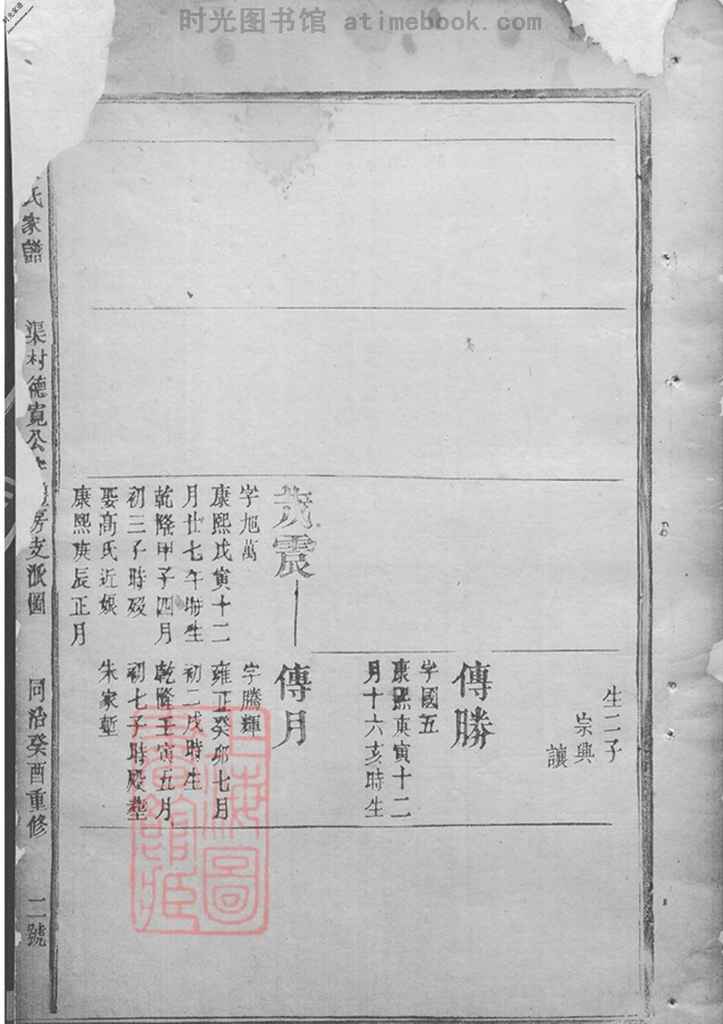 时光图书馆 atimebook.com
生二子
崇興
讓
傳勝
字國五
康熙庚寅十二
月十六亥時生
茂震
字旭萬
康熙戊寅十二
月廿七午時生
乾隆甲子四月
初三子時歿
娶高氏近娘
康熙庚辰正月
傳月
字騰輝
雍正癸卯七月
初二戌時生
乾隆壬寅五月
初七子時殁塟
朱家塹
氏家譜
渠村德寬公
房支派圖
同治癸酉重修
二號